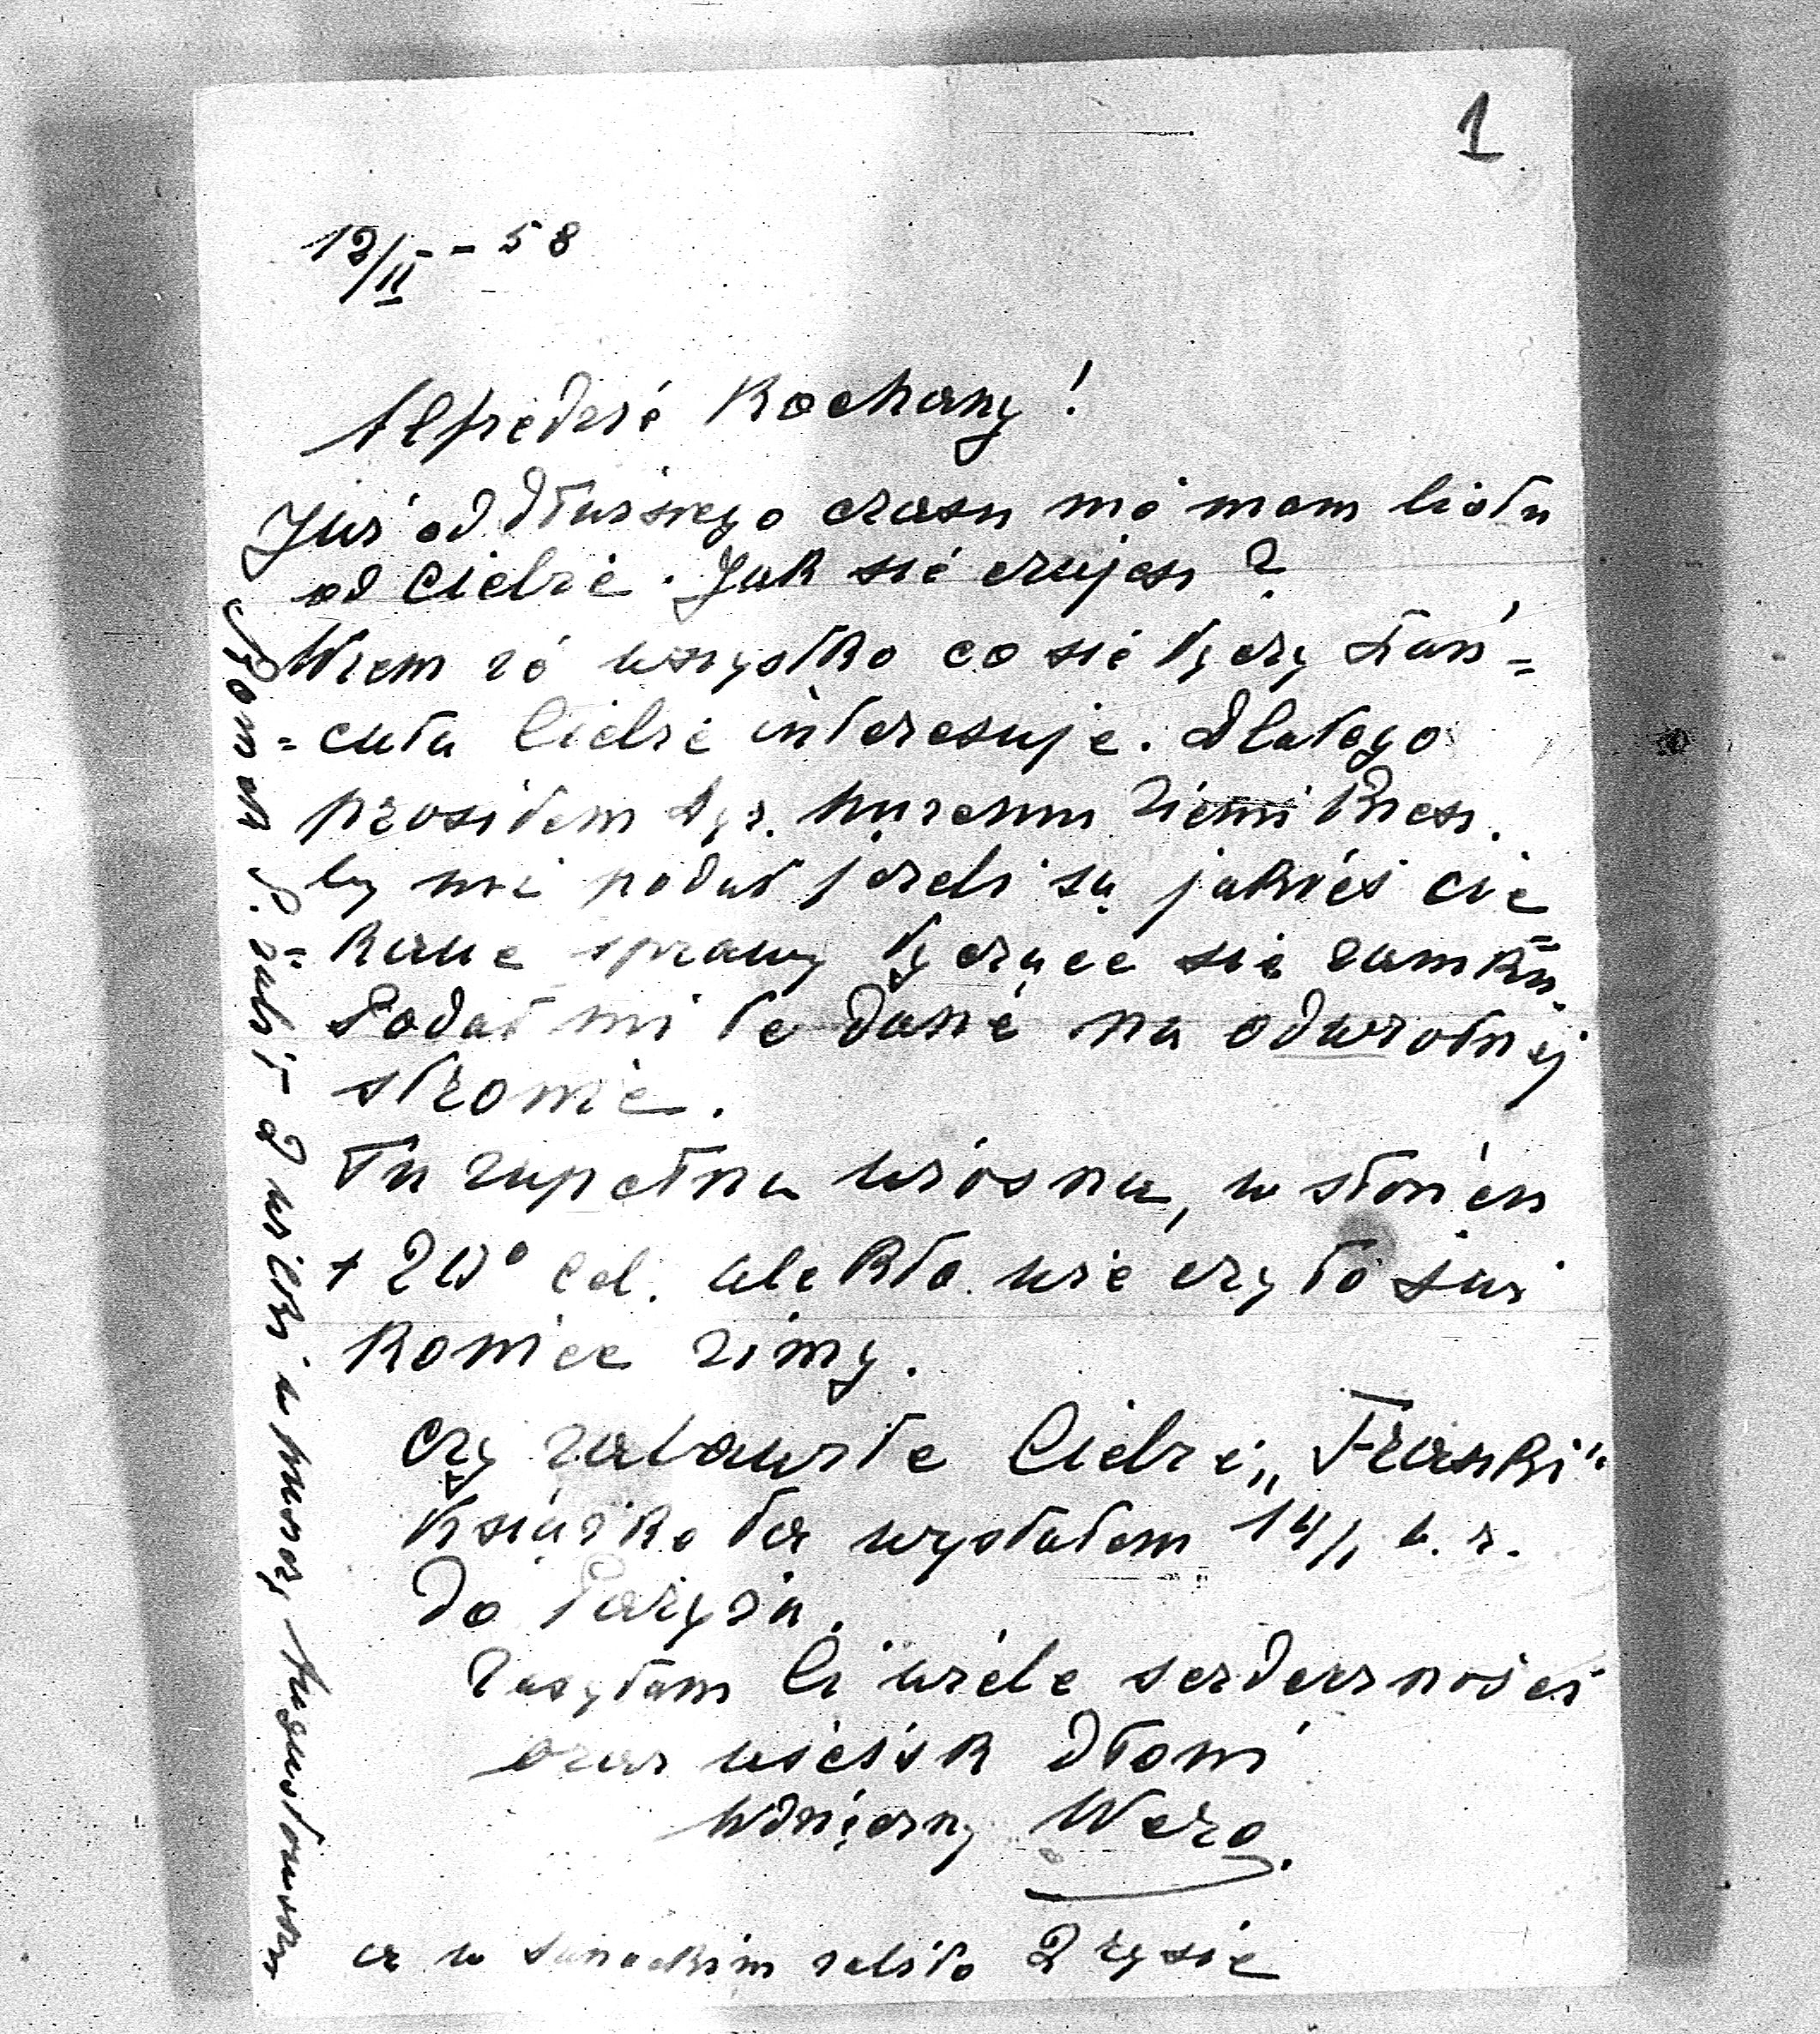 1
12/II - 58
Alfredzie Kochany!
Już od dłuższego czasu nie mam listu
od Ciebie. Jak się czujesz?
Wiem że wszystko co się tyczy Łań=
=cuta Ciebie interesuje. Dlatego
prosiłem Dyr. Muzeum Ziemi Przesz.
by mi podał jeżeli są jakieś cie=
=kawe sprawy tyczące się zamku.
Podał mi te dane na odwrotnej
stronie.
Tu zupełna wiosna, w słońcu
+ 20° Cel. ale kto wie czy to już
koniec zimy.
Czy zabawiła Ciebie „Franki"
Książkę tą wysłałem 14/I b.r.
do Paryża.
Zasyłam Ci wiele serdeczności
oraz uścisk dłoni
Wdzięczny
a w Sanockim zabito 2 rysie
Roman P. zabił 2 wilki w puszczy Augustowskiej